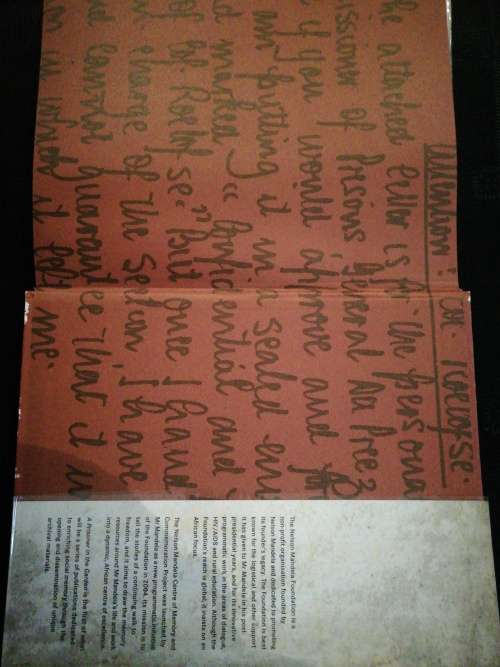 Attention: Col. Roelofse.
he attached letter is for the persona
issioner of Prisons, General Du Preez
if you would approve and
am putting it in a sealed env
d marked "Confidential and
of Roelofse." But once I hand
n charge of the section I have
nd cannot guarantee that it
n in which it left me.
The Nelson Mandela Foundation is a
non-profit organisation founded by
Nelson Mandela and dedicated to promoting
its founder's legacy. The Foundation is best
known for the logistical and other support
it has given to Mr Mandela in his post-
presidential years, and for its innovative
programmatic work in the areas of dialogue,
HIV/AIDS and rural education. Although the
Foundation's reach is global, it insists on an
African focus.
The Nelson Mandela Centre of Memory and
Commemoration Project was launched by
Mr Mandela as a new programmatic initiative
of the Foundation in 2004. Its mission is to
tell the stories of a continuing walk to
freedom, and it aims to draw the memory
resources around Mr Mandela's life and work
into a dynamic, African centre of excellence.
A Prisoner in the Garden is the first of what
will be a series of publications dedicated
to enriching social memory through the
opening and dissemination of unique
archival materials.